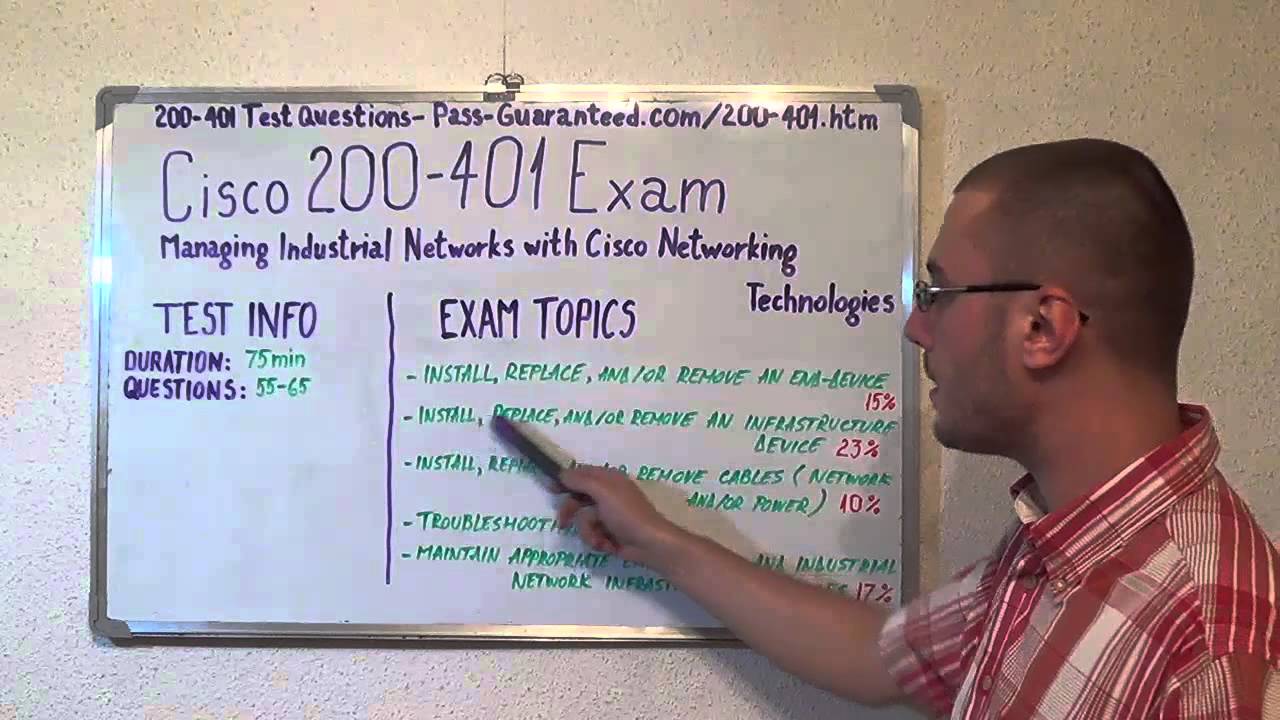 200-401 Test Questions- Pass-Guaranteed.com/200-401.htm
Cisco 200-401 Exam
Managing Industrial Networks with Cisco Networking
Technologies
TEST INFO
DURATION: 75min
QUESTIONS: 55-65
EXAM TOPICS
- INSTALL, REPLACE, AND/OR REMOVE AN END-DEVICE
15%
- INSTALL, REPLACE, AND/OR REMOVE AN INFRASTRUCTURE
DEVICE 23%
- INSTALL, REMOVE CABLES (NETWORK
AND/OR POWER) 10%
- 
- MAINTAIN APPROPRIATE AND INDUSTRIAL
NETWORK 17%